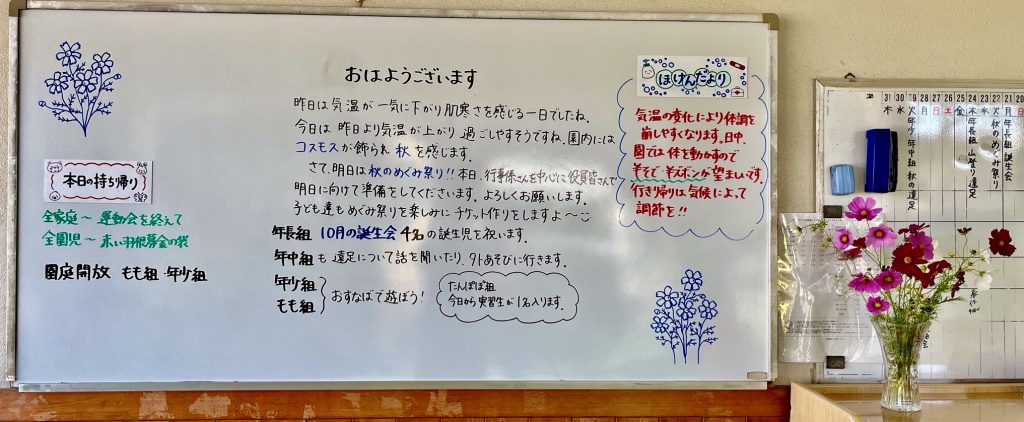 おはようございます
昨日は気温が一気に下がり肌寒さを感じる一日でしたね。
今日は昨日より気温が上がり過ごしやすそうですね。園内には
コスモスが飾られ秋を感じます。
さて、明日は秋のめぐみ祭り!!本日、行事係さんを中心に役員皆さんで
明日に向けて準備をしてくださいます。よろしくお願いします。
子ども達もめぐみ祭りを楽しみにチケット作りをしますよ〜
年長組 10月の誕生会 4名の誕生児を祝います。
年中組も遠足について話を聞いたり、外あそびに行きます。
年少組
もも組
おすなばで遊ぼう!
たんぽぽ組
今日から実習生が1名入ります。
本日の持ち帰り
全家庭〜運動会を終えて
全園児〜赤い羽根募金の袋
園庭開放 もも組・年少組
ほけんだより
気温の変化により体調を
崩しやすくなります。日中、
園では体を動かすので
半そで・半ズボンが望ましいです。
行き帰りは気候によって
調節を!!
31 30 29 28 27 26 25 24 23 22 21
木 水 火 月 日 土 金 木 水 火 月
年少・年中組 秋の遠足
年長組 山登り遠足
秋のめぐみ祭り
年長組 誕生会